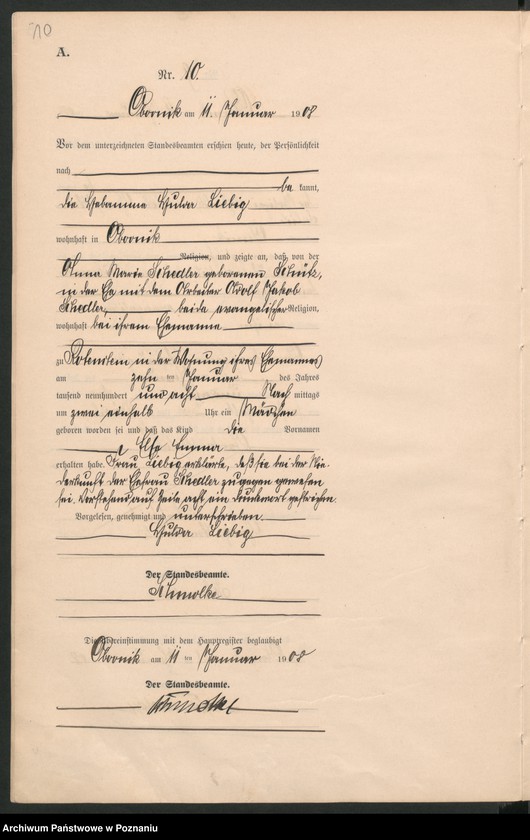 10
A.
Nr. 10.
Obornik am 11 Januar 1908
Vor dem unterzeichneten Standesbeamten erschien heute, der Persönlichkeit
nach
be kannt,
die Hebamme Hulda Liebig
wohnhaft in Obornik
Religion, und zeigte an, daß von der
Anna Marie Schedler geborenen Schülz,
in der Ehe mit dem Arbeiter Adolf Jakob
Schedler, beide evangelischer Religion,
wohnhaft bei ihrem Ehemanne
zu Rotenstein in der Wohnung ihres Ehemannes
am zehn ten Januar des Jahres
tausend neunhundert und acht Nach mittags
um zwei einhalb Uhr ein Mädchen
geboren worden sei und daß das Kind die Vornamen
Else Emma
erhalten habe. Frau Liebig erklärte, daß sie bei der Nie-
derkunft der Ehefrau Schedler zugegen gewesen
sei. Vorstehend auf Zeile acht ein Druckwort gestrichen.
Vorgelesen, genehmigt und unterschrieben
Hulda Liebig
Der Standesbeamte.
Schmolke
Die Übereinstimmung mit dem Hauptregister beglaubigt
Obornik am 11 ten Januar 1908
Der Standesbeamte.
Schmolke
Archiwum Państwowe w Poznaniu